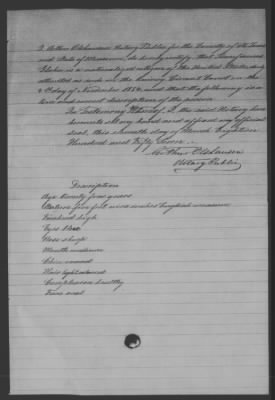 I Arthur Olshausen Notary Public for the County of St. Louis
and State of Missouri, do hereby certify that
is a naturalized citizen of the United States,
attested as such in the County Circuit Court on the
day of November 1854, and that the following is a
true and correct description of his person
In Testimony Whereof I the said Notary have
hereunto set my hand and affixed my official
seal, this day of March Eighteen
Hundred and Fifty
Arthur Olshausen
Notary Public
Description
Age twenty four years
Stature five feet nine inches English measure
Forehead high
Eyes blue
Nose sharp
Mouth medium
Chin round
Hair light colored
Complexion healthy
Face oval